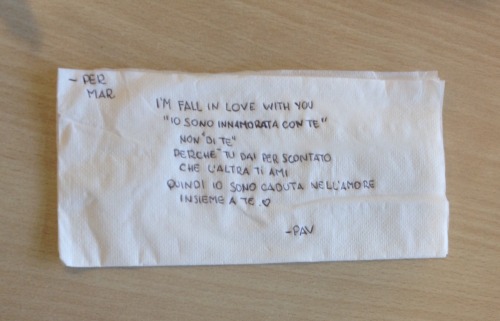 - PER
MAR
I'M FALL IN LOVE WITH YOU
"IO SONO INNAMORATA CON TE"
NON "DI TE"
PERCHE' TU DAI PER SCONTATO
CHE L'ALTRA TI AMI
QUINDI IO SONO CADUTA NELL'AMORE
INSIEME A TE.♡
-PAV